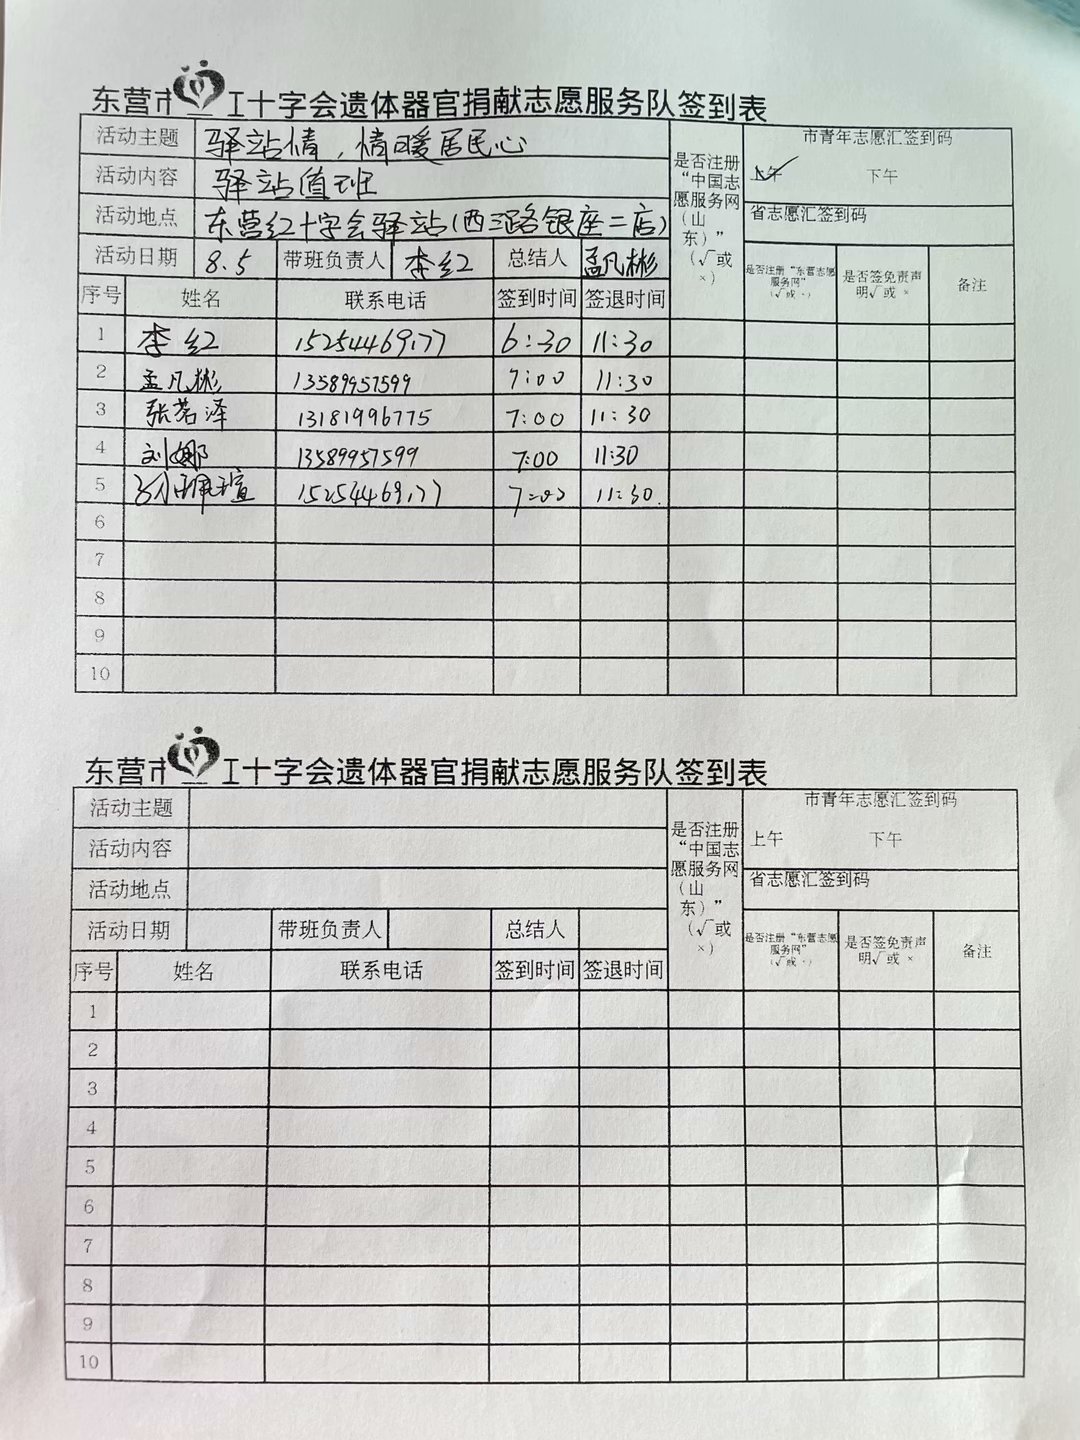 东营市 工十字会遗体器官捐献志愿服务队签到表
活动主题 驿站情，情暖居民心 是否注册“中国志愿服务网（山东）”（√或×） 市青年志愿汇签到码
活动内容 驿站值班 上午 下午
活动地点 东营红十字会驿站(西三路银座二店) 省志愿汇签到码
活动日期 8.5 带班负责人 李红 总结人 孟凡彬 是否注册“东营志愿服务网”（√或×） 是否签免责声明√或× 备注
序号 姓名 联系电话 签到时间 签退时间
1 李红 15254469177 6:30 11:30
2 孟凡彬 13589957599 7:00 11:30
3 张茗泽 13181996775 7:00 11:30
4 刘娜 13589957599 7:00 11:30
5 15254469177 7:00 11:30.
6
7
8
9
10
东营市 工十字会遗体器官捐献志愿服务队签到表
活动主题 是否注册“中国志愿服务网（山东）”（√或×） 市青年志愿汇签到码
活动内容 上午 下午
活动地点 省志愿汇签到码
活动日期 带班负责人 总结人 是否注册“东营志愿服务网”（√或×） 是否签免责声明√或× 备注
序号 姓名 联系电话 签到时间 签退时间
1
2
3
4
5
6
7
8
9
10